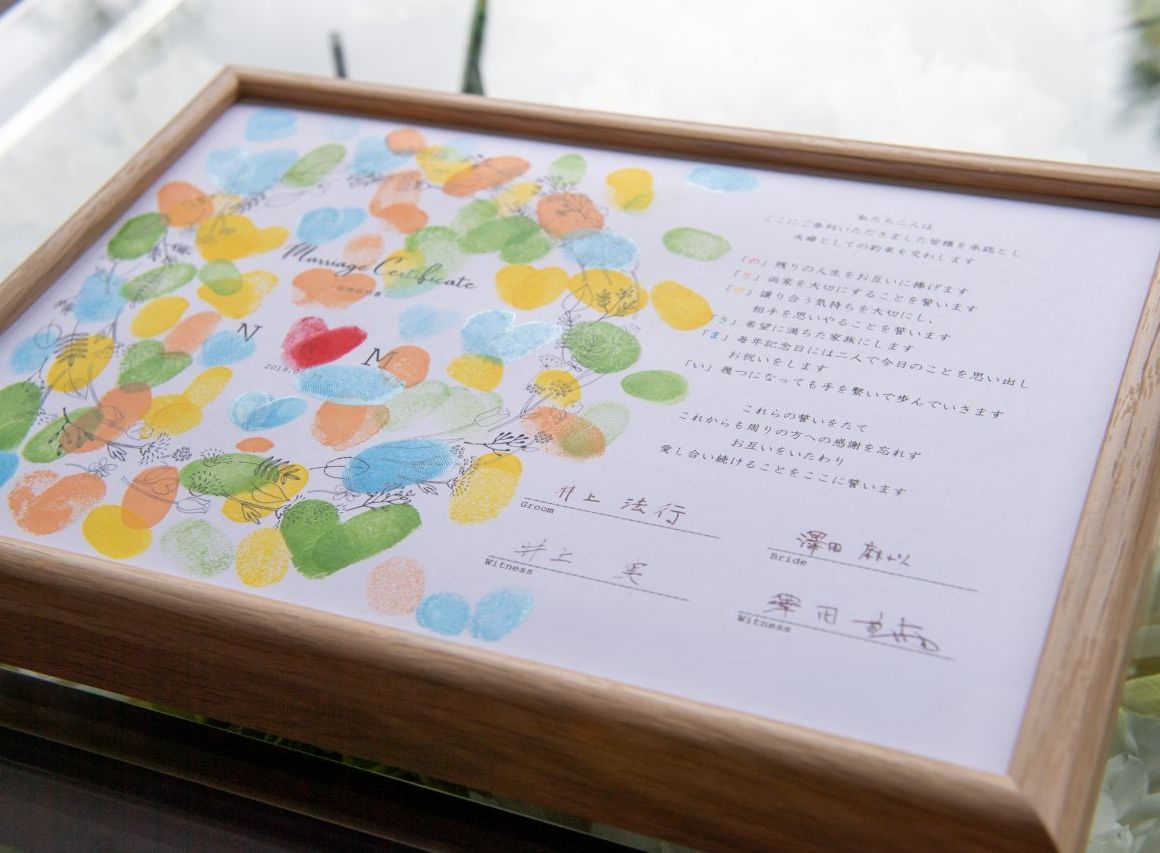 Marriage Certificate
N
M
私たち二人は
ここにご参列いただきました皆様を承認とし
夫婦としての約束を交わします
「の」残りの人生をお互いに捧げます
「り」両家を大切にすることを誓います
譲り合う気持ちを大切にし、
相手を思いやることを誓います
「き」希望に満ちた家族にします
「ま」毎年記念日には二人で今日のことを思い出し
お祝いをします
「い」幾つになっても手を繋いで歩んでいきます
これらの誓いをたて
これからも周りの方への感謝を忘れず
お互いをいたわり
愛し合い続けることをここに誓います
井上 法行
Groom
澤田 麻以
Bride
井上 実
Witness
澤田
Witness